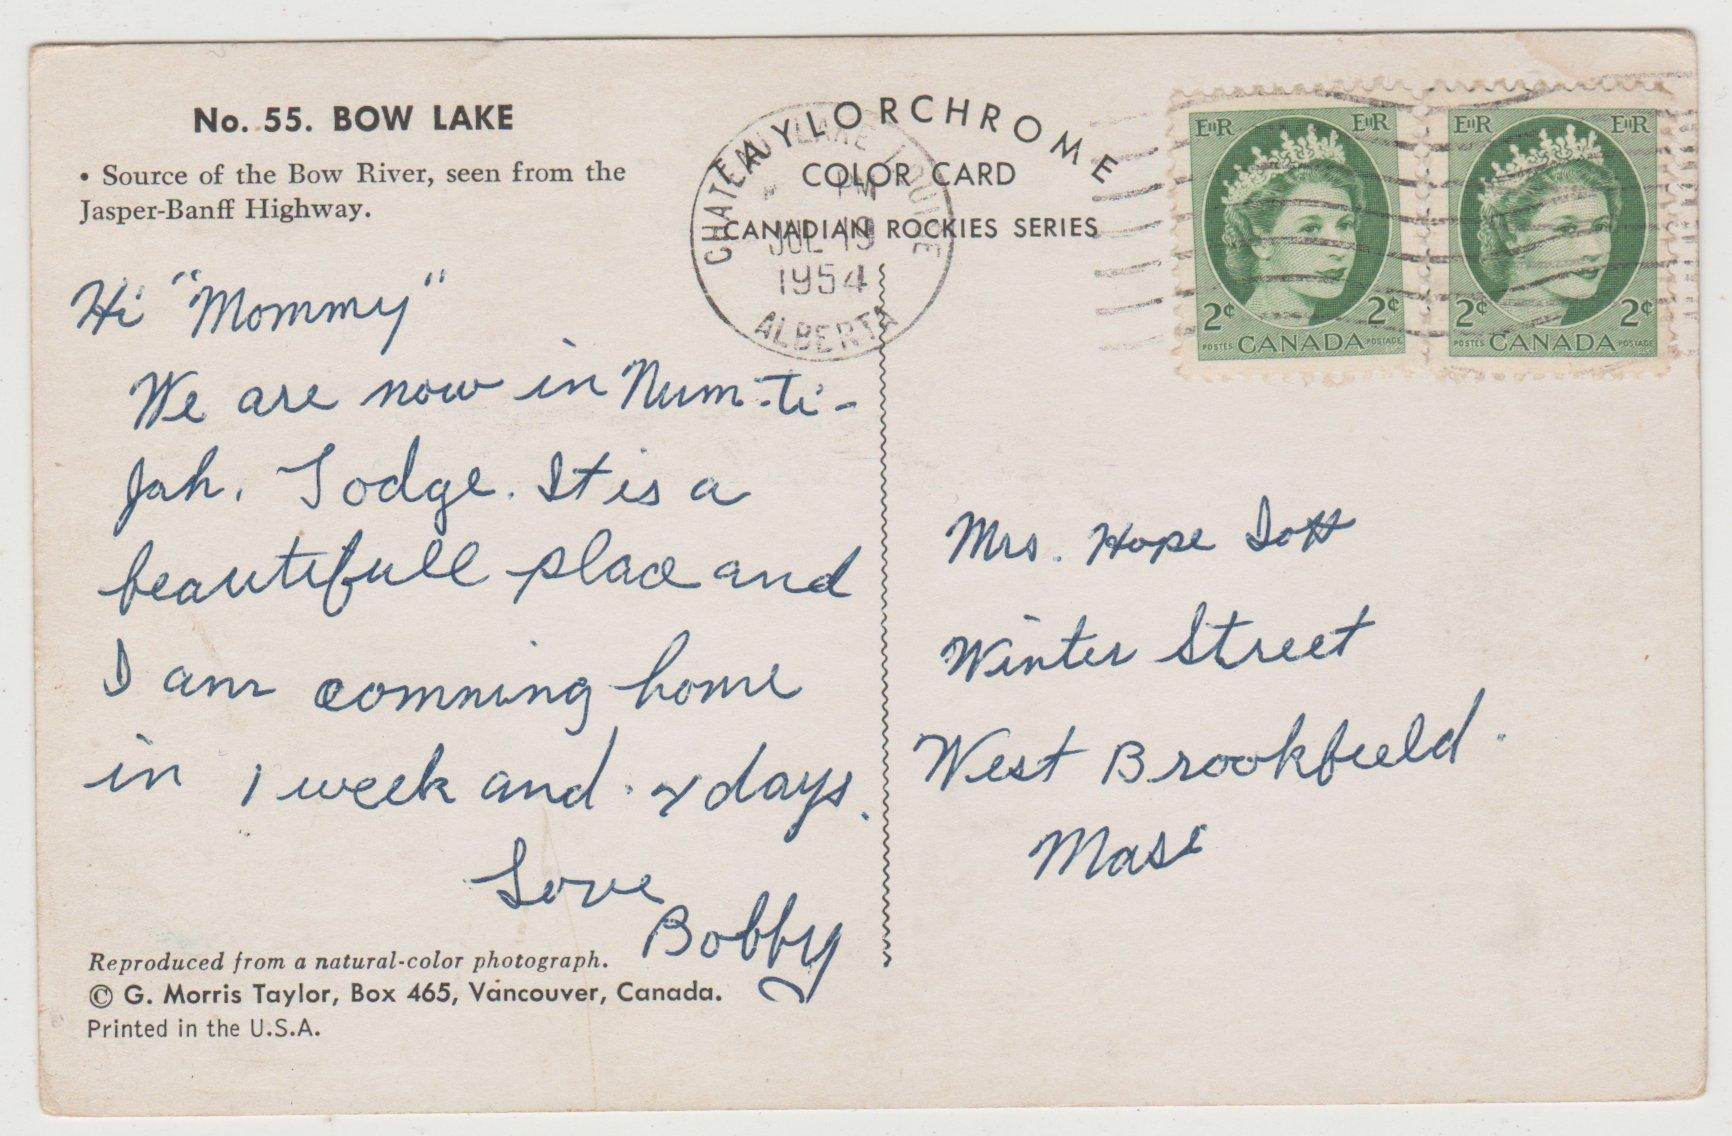 No. 55. BOW LAKE
• Source of the Bow River, seen from the
Jasper-Banff Highway.
Hi "Mommy"
We are now in Num-ti-
Jah. Lodge. It is a
beautifull place and
I am comming home
in 1 week and days.
Love
Bobby
Reproduced from a natural-color photograph.
© G. Morris Taylor, Box 465, Vancouver, Canada.
Printed in the U.S.A.
TAYLORCHROME
COLOR CARD
CANADIAN ROCKIES SERIES
CHATEAU LAKE LOUISE
PM
JUL 19
1954
ALBERTA
EIIR EIIR
2¢ 2¢
POSTES CANADA POSTAGE
EIIR EIIR
2¢ 2¢
POSTES CANADA POSTAGE
Mrs. Hope
Winter Street
West Brookfield
Mass